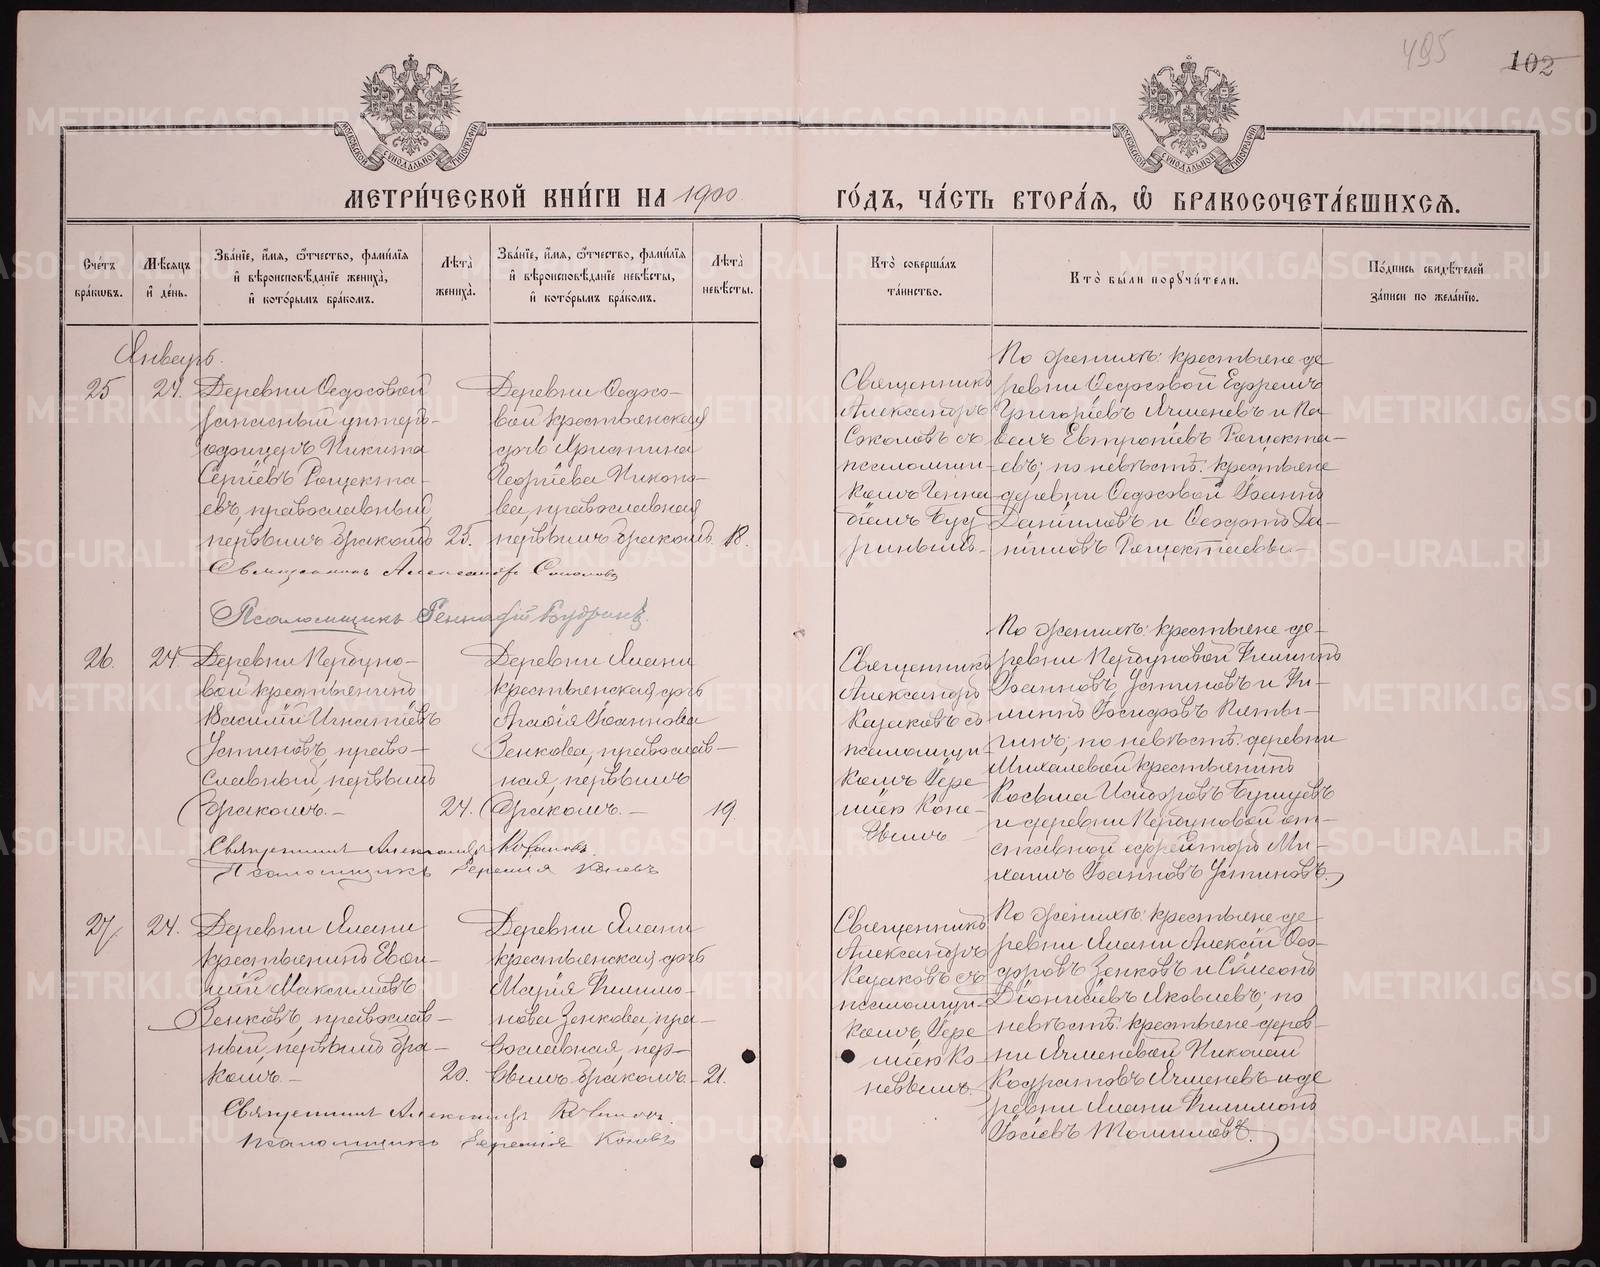 495
102
МЕТРИ́ЧЕСКОЙ КНИ́ГИ НА 1900
ГО́ДЪ, ЧА́СТЬ ВТОРА́Я, Ѡ БРАКОСОЧЕТА́ВШИХСЯ.
Сче́тъ бра́кѡвъ.
Мѣ́сяцъ и де́нь.
Зва́нїе, и́мя, ѻ҆́тчество, фами́лїя и вѣроисповѣ́данїе жениха̀, и кото́рымъ бра́комъ.
Лѣ́та жениха̀.
Зва́нїе, и́мя, ѻ҆́тчество, фами́лїя и вѣроисповѣ́данїе невѣ́сты, и кото́рымъ бра́комъ.
Лѣ́та невѣ́сты.
Кто̀ соверша́лъ та́инство.
Кто̀ бы́ли порꙋчи́тели.
По́дпись свидѣ́телей за́писи по жела́нїю.
Январь.
25
24.
Деревни Ѳедосовой
запасный унтеръ-
офицеръ Никита
Сергіевъ Рощекта-
евъ, православный
первымъ бракомъ
25.
Деревни Ѳедосо-
вой крестьянская
дочь Христина
Георгіева Никоно-
ва, православная
первымъ бракомъ.
18.
Священникъ
Александръ
Соколовъ съ
псаломщи-
комъ Генна-
діемъ Буд
ринымъ.
По женихѣ: крестьяне де
ревни Ѳедосовой Ефремъ
Григоріевъ Ячменевъ и Па-
велъ Евтропіевъ Рощекта-
евъ; по невѣстѣ: крестьяне
деревни Ѳедосовой Іоаннъ
Даніиловъ и Ѳеодотъ Да-
ніиловъ Рощектаевы.
Священникъ Александръ Соколовъ
Псаломщикъ Геннадій Будринъ.
26.
24
Деревни Пербуно-
вой крестьянинъ
Василій Игнатіевъ
Устиновъ, право-
славный, первымъ
бракомъ.
24.
Деревни Ялани
крестьянская дочь
Агафія Іоаннова
Зенкова, православ-
ная, первымъ
бракомъ.
19.
Священникъ
Александръ
Казаковъ съ
псаломщи
комъ Іере
міею Коне-
вымъ
По женихѣ: крестьяне де-
ревни Пербуновой Филиппъ
Іоанновъ Устиновъ и Фи-
липпъ Іосифовъ Пяты-
гинъ; по невѣстѣ: деревни
Михалевой крестьянинъ
Косьма Исидоровъ Бурцевъ
и деревни Пербуновой от-
ставной ефрейторъ Ми-
хаилъ Іоанновъ Устиновъ.
Священникъ Александръ Казаковъ
Псаломщикъ Іеремія Коневъ
27
24.
Деревни Ялани
крестьянинъ Евѳи-
мій Максимовъ
Зенковъ, православ-
ный, первымъ бра-
комъ.
20.
Деревни Ялани
крестьянская дочь
Марія Филимо-
нова Зенкова, пра-
вославная, пер-
вымъ бракомъ.
21.
Священникъ
Александръ
Казаковъ съ
псаломщи-
комъ Іере
міею Ко-
невымъ.
По женихѣ: крестьяне де
ревни Ялани Алексій Ѳео-
доровъ Зенковъ и Сѵмеонъ
Діонисіевъ Яковлевъ; по
невѣстѣ: крестьяне дерев-
ни Ячменевой Николай
Кодратовъ Ячменевъ и де
ревни Ялани Филимонъ
Іовлевъ Томиловъ.
Священникъ Александръ Казаковъ
Псаломщикъ Іеремія Коневъ
METRIKI.GASO-URAL.RU